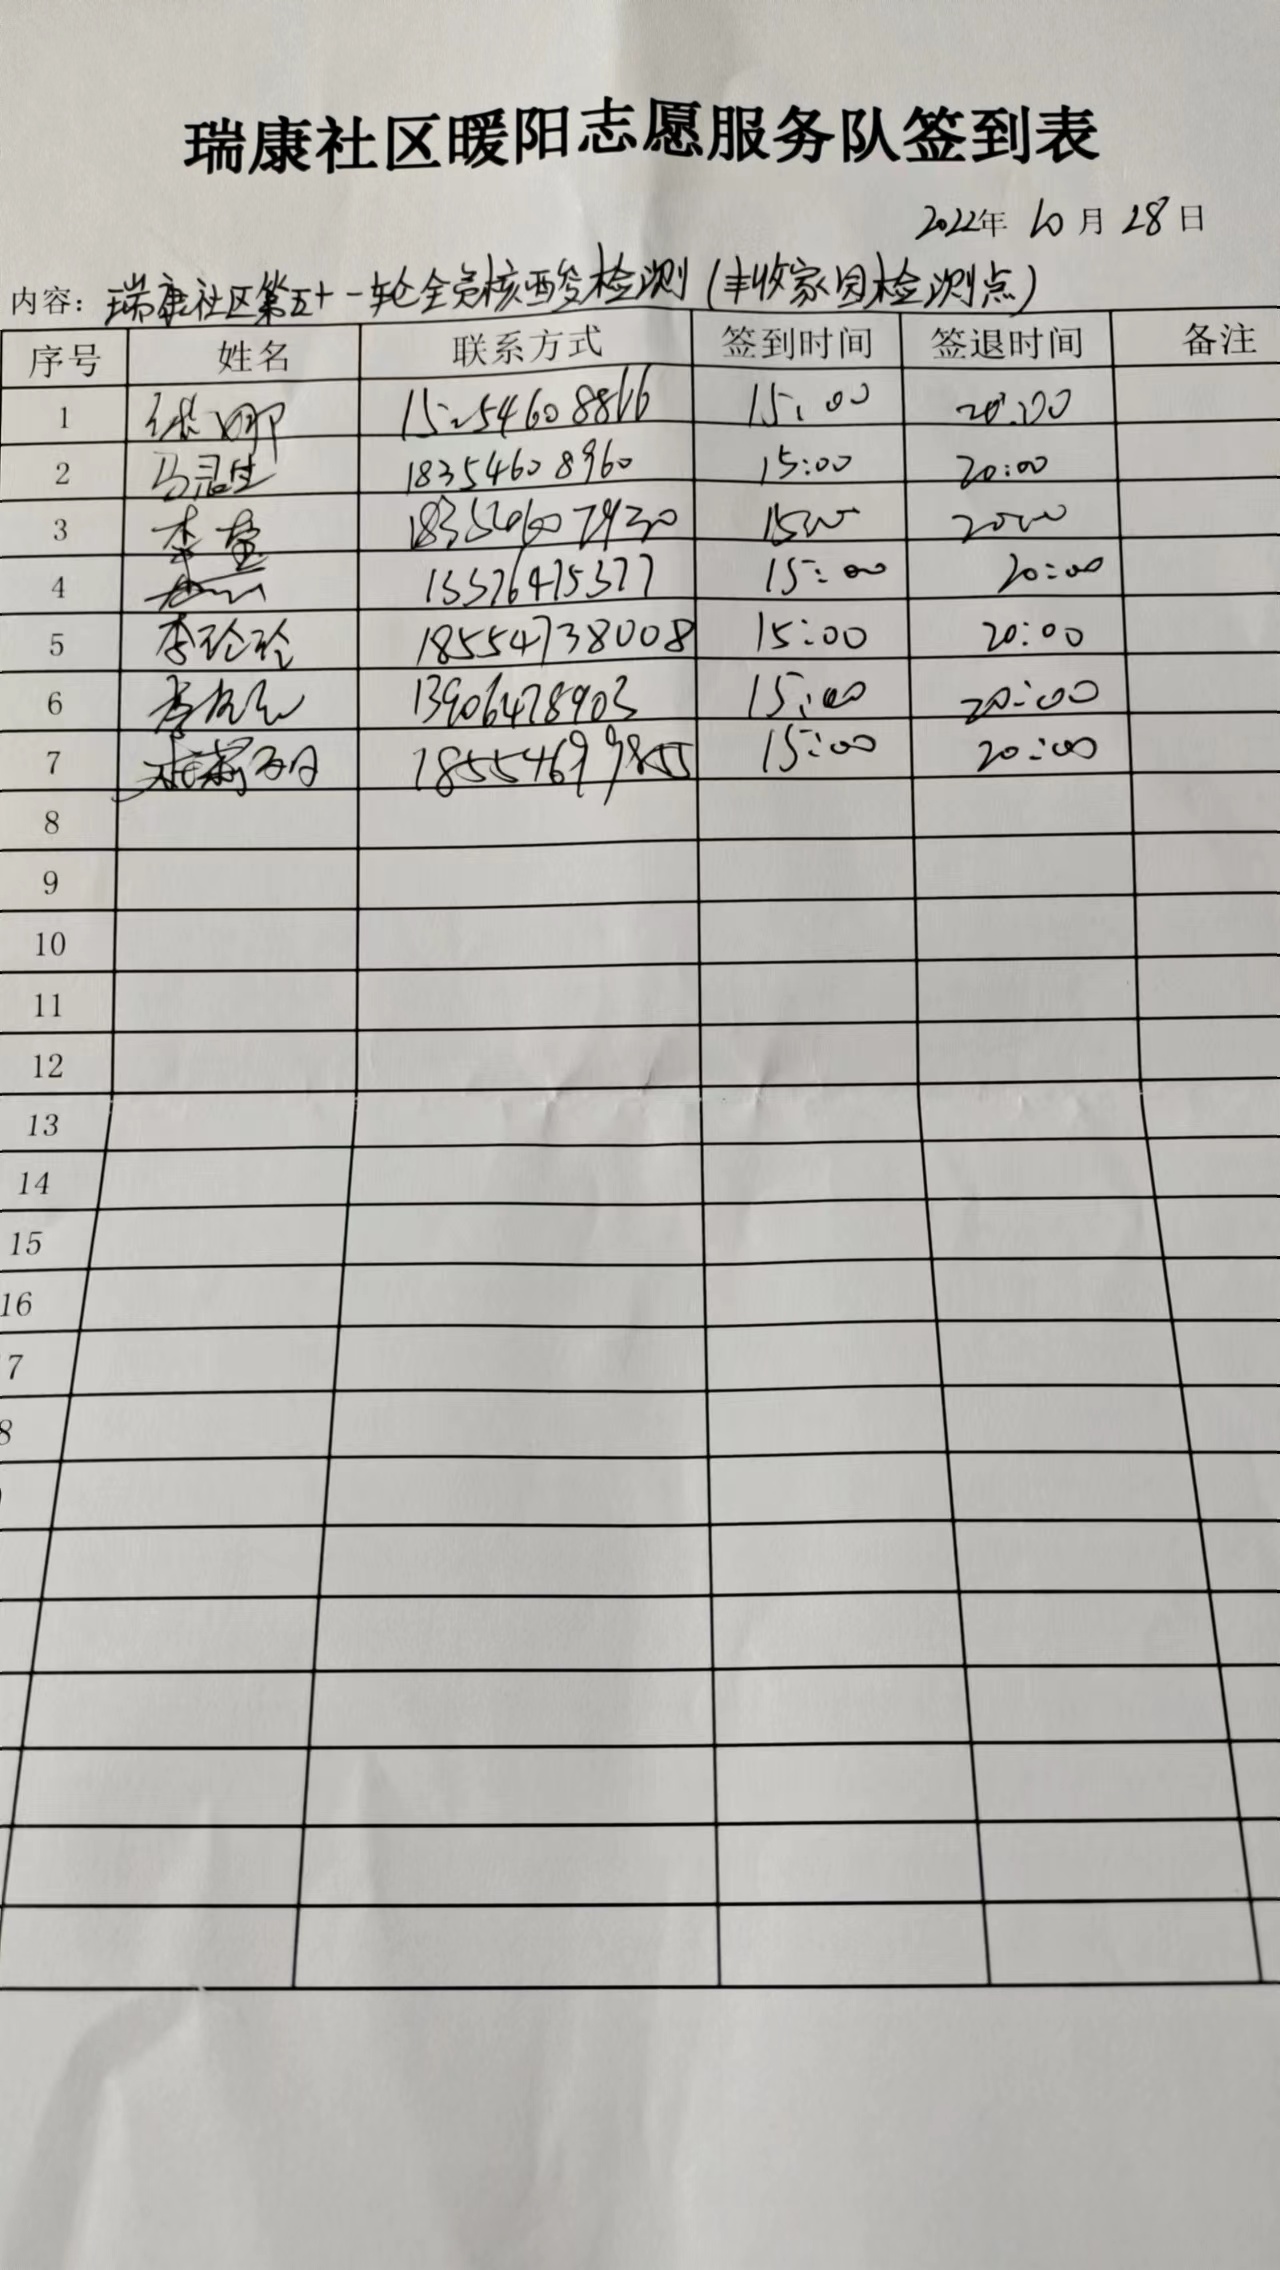 瑞康社区暖阳志愿服务队签到表
2022年 10月 28日
内容：瑞康社区第五十一轮全员核酸检测（丰收家园检测点）
序号 姓名 联系方式 签到时间 签退时间 备注
1 娜 15254608866 15:00 20:00
2 马 18354608960 15:00 20:00
3 李 18354607930 1500 2000
4 15:00 20:00
5 李玲玲 18554738008 15:00 20:00
6 李 13906478903 15:00 20:00
7 18554699855 15:00 20:00
8
9
10
11
12
13
14
15
16
7
8